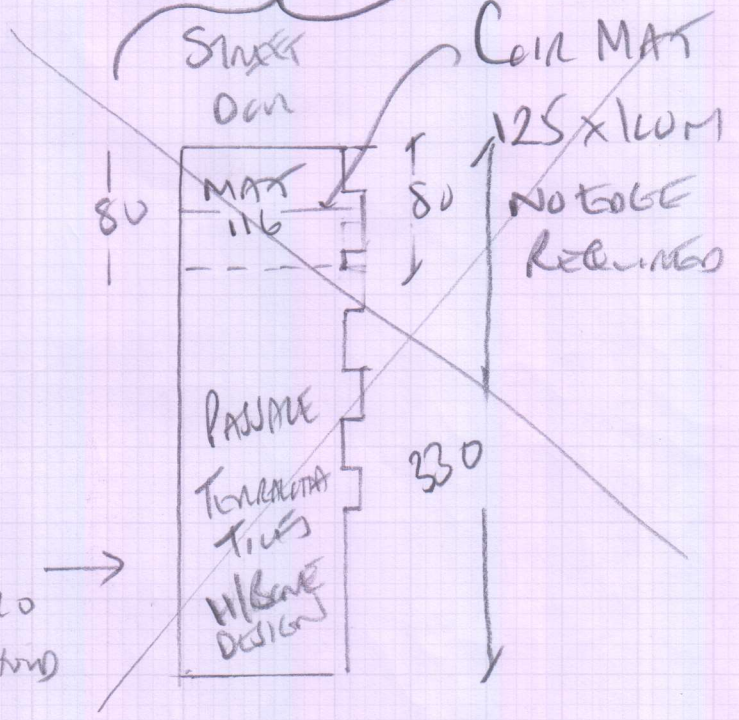 STREET
DOOR
COIR MAT
125 x 1.20M
NO EDGE
REQUIRED
80
MAT
116
80
PASSAGE
TERRACOTTA
TILES
H/BONE
DESIGN
330